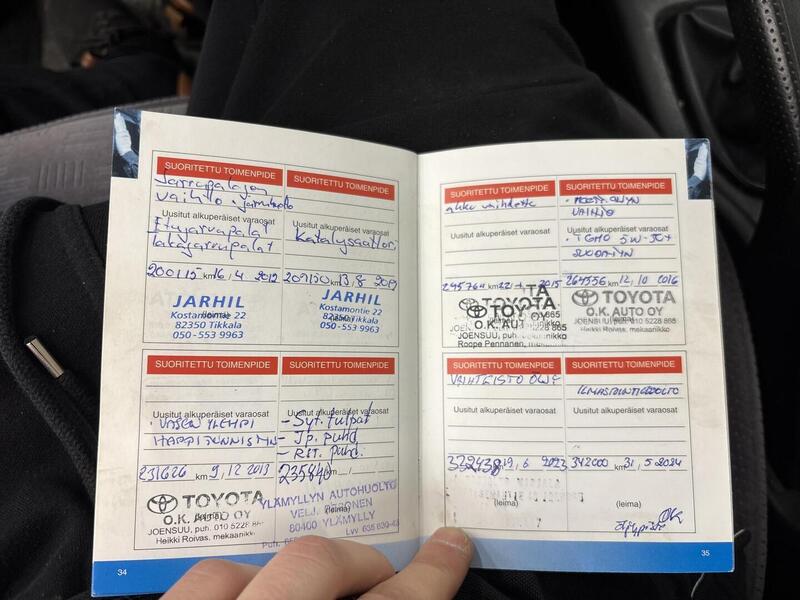 SUORITETTU TOIMENPIDE
Jarrupalojen
vaihto
Uusitut alkuperäiset varaosat
Etujarrupalat
takajarrupalat
200115 km 16, 4 2012
JARHIL
Kostamontie 22
(leima)
82350 Tikkala
050 -553 9963
SUORITETTU TOIMENPIDE
Uusitut alkuperäiset varaosat
Katalysaattori
km 13, 8
JARHIL
Kostamontie 22
(leima)
82350 Tikkala
050 -553 9963
SUORITETTU TOIMENPIDE
Uusitut alkuperäiset varaosat
- VASEN YLEMPI
HAPPITUNNISTIN
231626 km 9, 12 2013
TOYOTA
(leima)
O.K. AUTO OY
JOENSUU, puh. 010 5228 865
Heikki Roivas, mekaanikko
SUORITETTU TOIMENPIDE
Uusitut alkuperäiset varaosat
- Syt. tulpat
- Jp. puhd.
- Rst. puhd.
235840 km
YLÄMYLLYN AUTOHUOLTO
(leima)
80400 YLÄMYLLY
34
SUORITETTU TOIMENPIDE
vaihdettu
Uusitut alkuperäiset varaosat
245764 km 2015
TOYOTA
TOYOTA
(leima)
O.K. AUT
JOENSUU, puh.
Roope Pennanen, mekaanikko
SUORITETTU TOIMENPIDE
VAIHTO
Uusitut alkuperäiset varaosat
- TGMO 5W-30
SUODATIN
264556 km 12, 10 2016
TOYOTA
O.K. AUTO OY
(leima)
JOENSUU, puh. 010 5228 865
Heikki Roivas, mekaanikko
SUORITETTU TOIMENPIDE
VAIHTEISTO ÖLJY
Uusitut alkuperäiset varaosat
322438 km 19, 6 2023
(leima)
SUORITETTU TOIMENPIDE
Uusitut alkuperäiset varaosat
342000 km 31, 5 2024
(leima)
OK
35